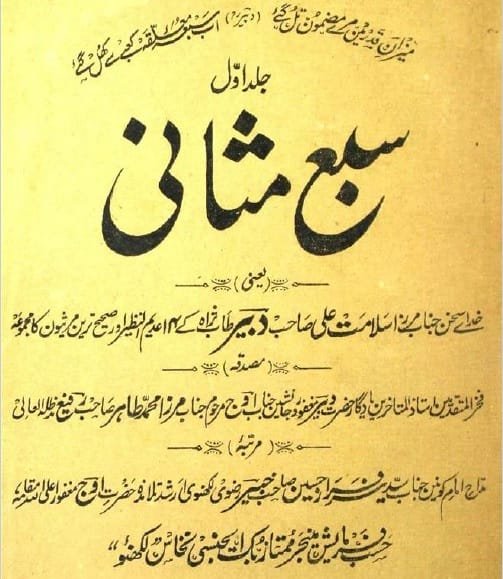 میزان قدر میں مرے مضمون تل گئے (دبیر) اب سبعہ معلقہ کعبے سے کھل گئے
جلد اوّل
سبع مثانی
(یعنی)
خدائے سخن جناب مرزا سلامت علی صاحب دبیر طاب ثراہ کے ۱۴ عدیم النظیر اور صحیح ترین مرثیوں کا مجموعہ
(مصدقہ)
فخر المتقدمین استاذ المتاخرین یادگار حضرت دبیر مغفور جانشین جناب اوج مرحوم جناب مرزا محمد طاہر صاحب رفیع مدظلہ العالی
(مرتبہ)
مداح امام کونین جناب سید سرفراز حسین صاحب خبیر رضوی لکھنوی ارشد تلامذہ حضرت اوج مغفور اعلی اللہ مقامہ
حسب فرمایش منیجر ممتاز بک ایجنسی نخاس لکھنؤ"